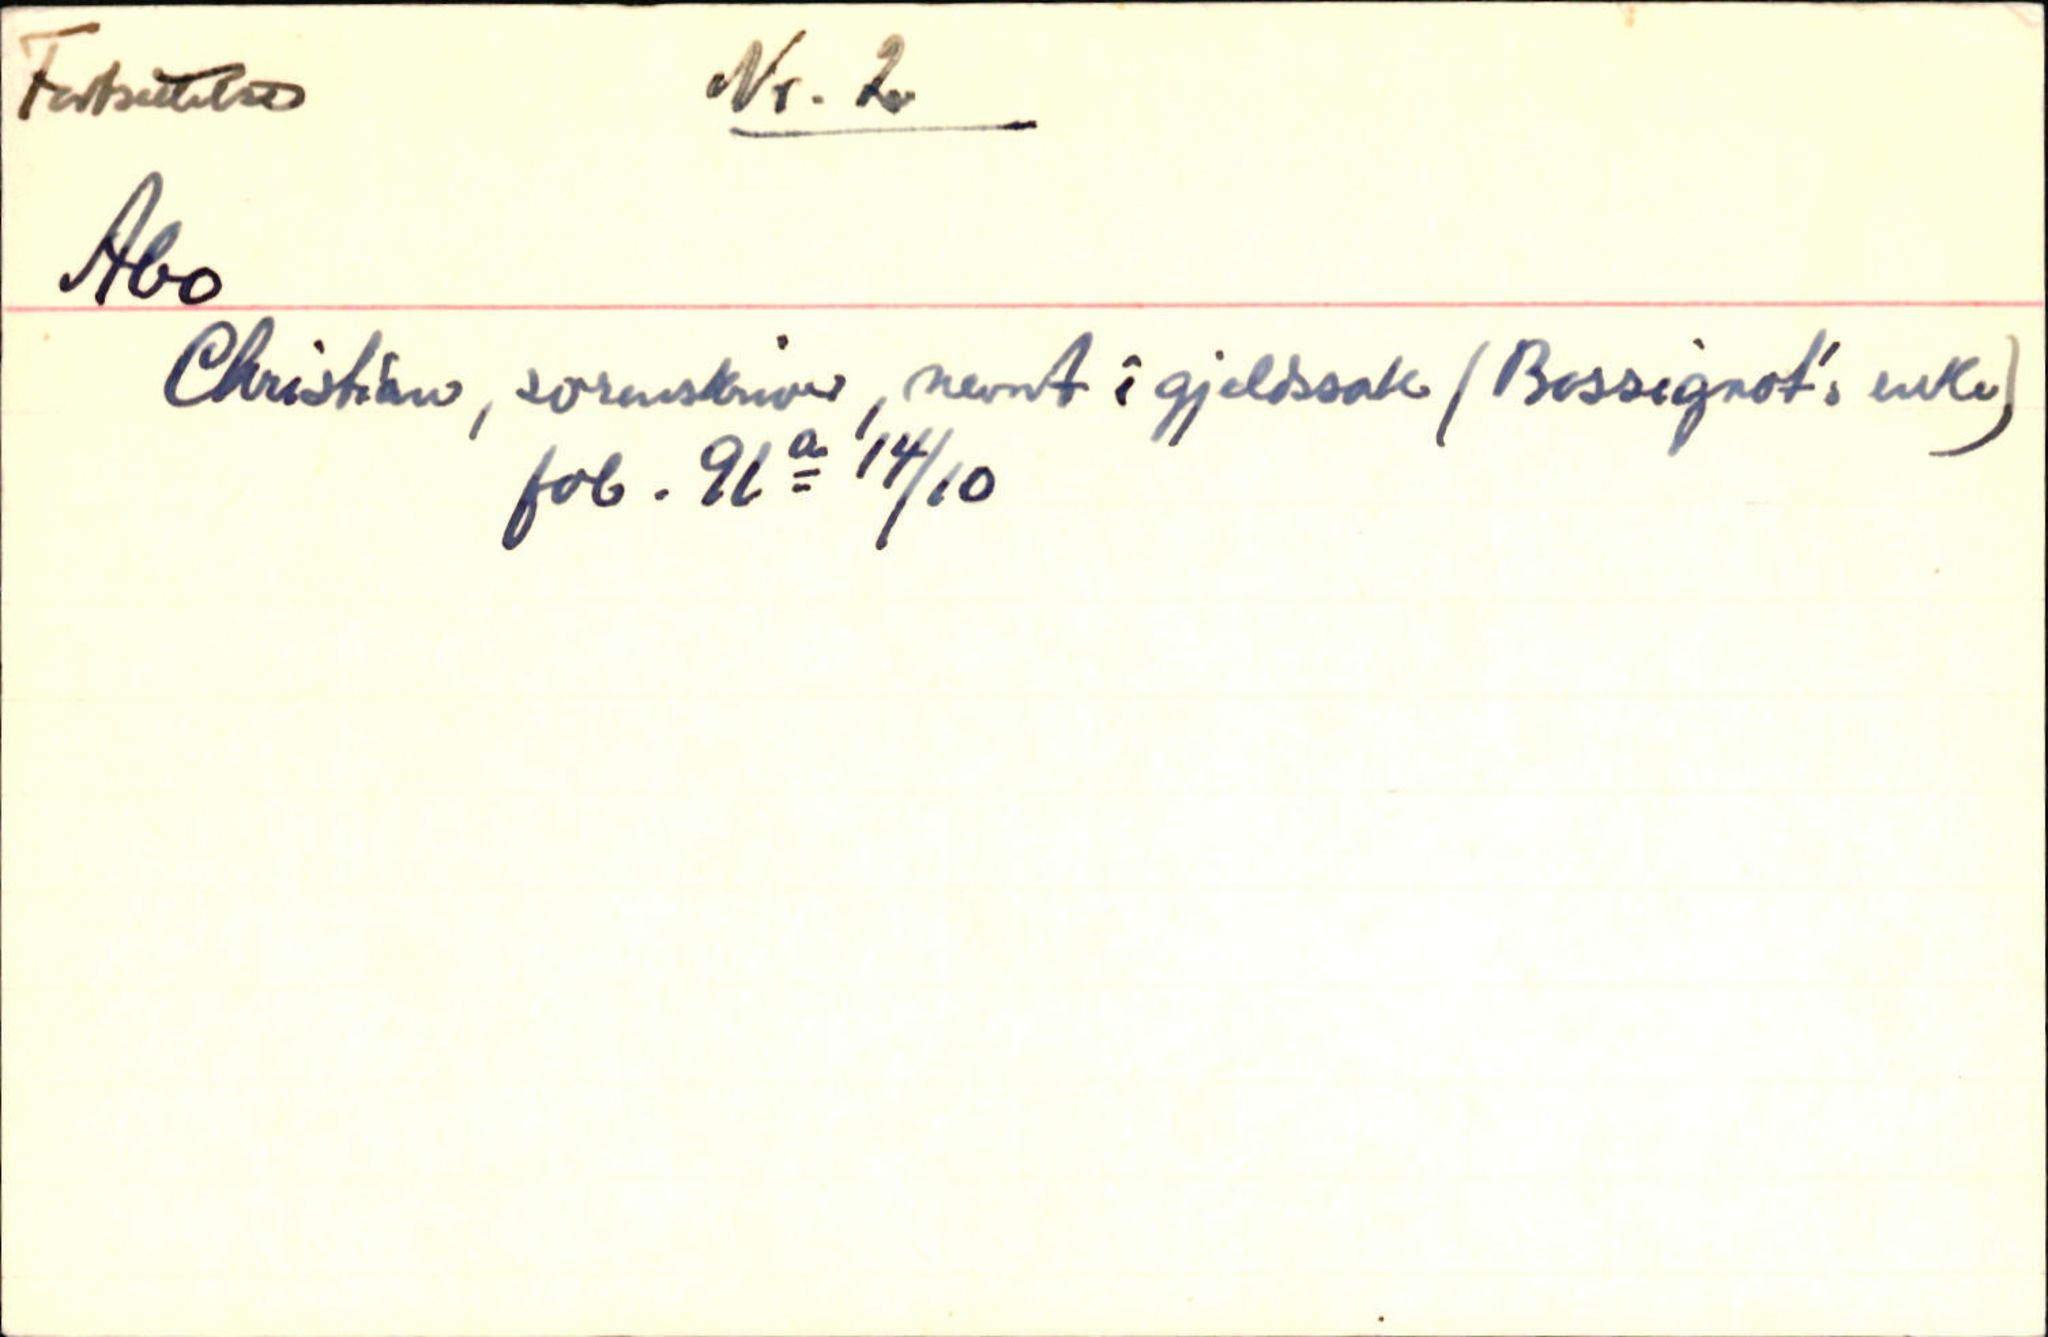 Fortsettelse Nr. 2
Abo
Christian, sorenskriver, nevnt i gjeldssak (Bossignot's enke)
fol. 91 a 14/10